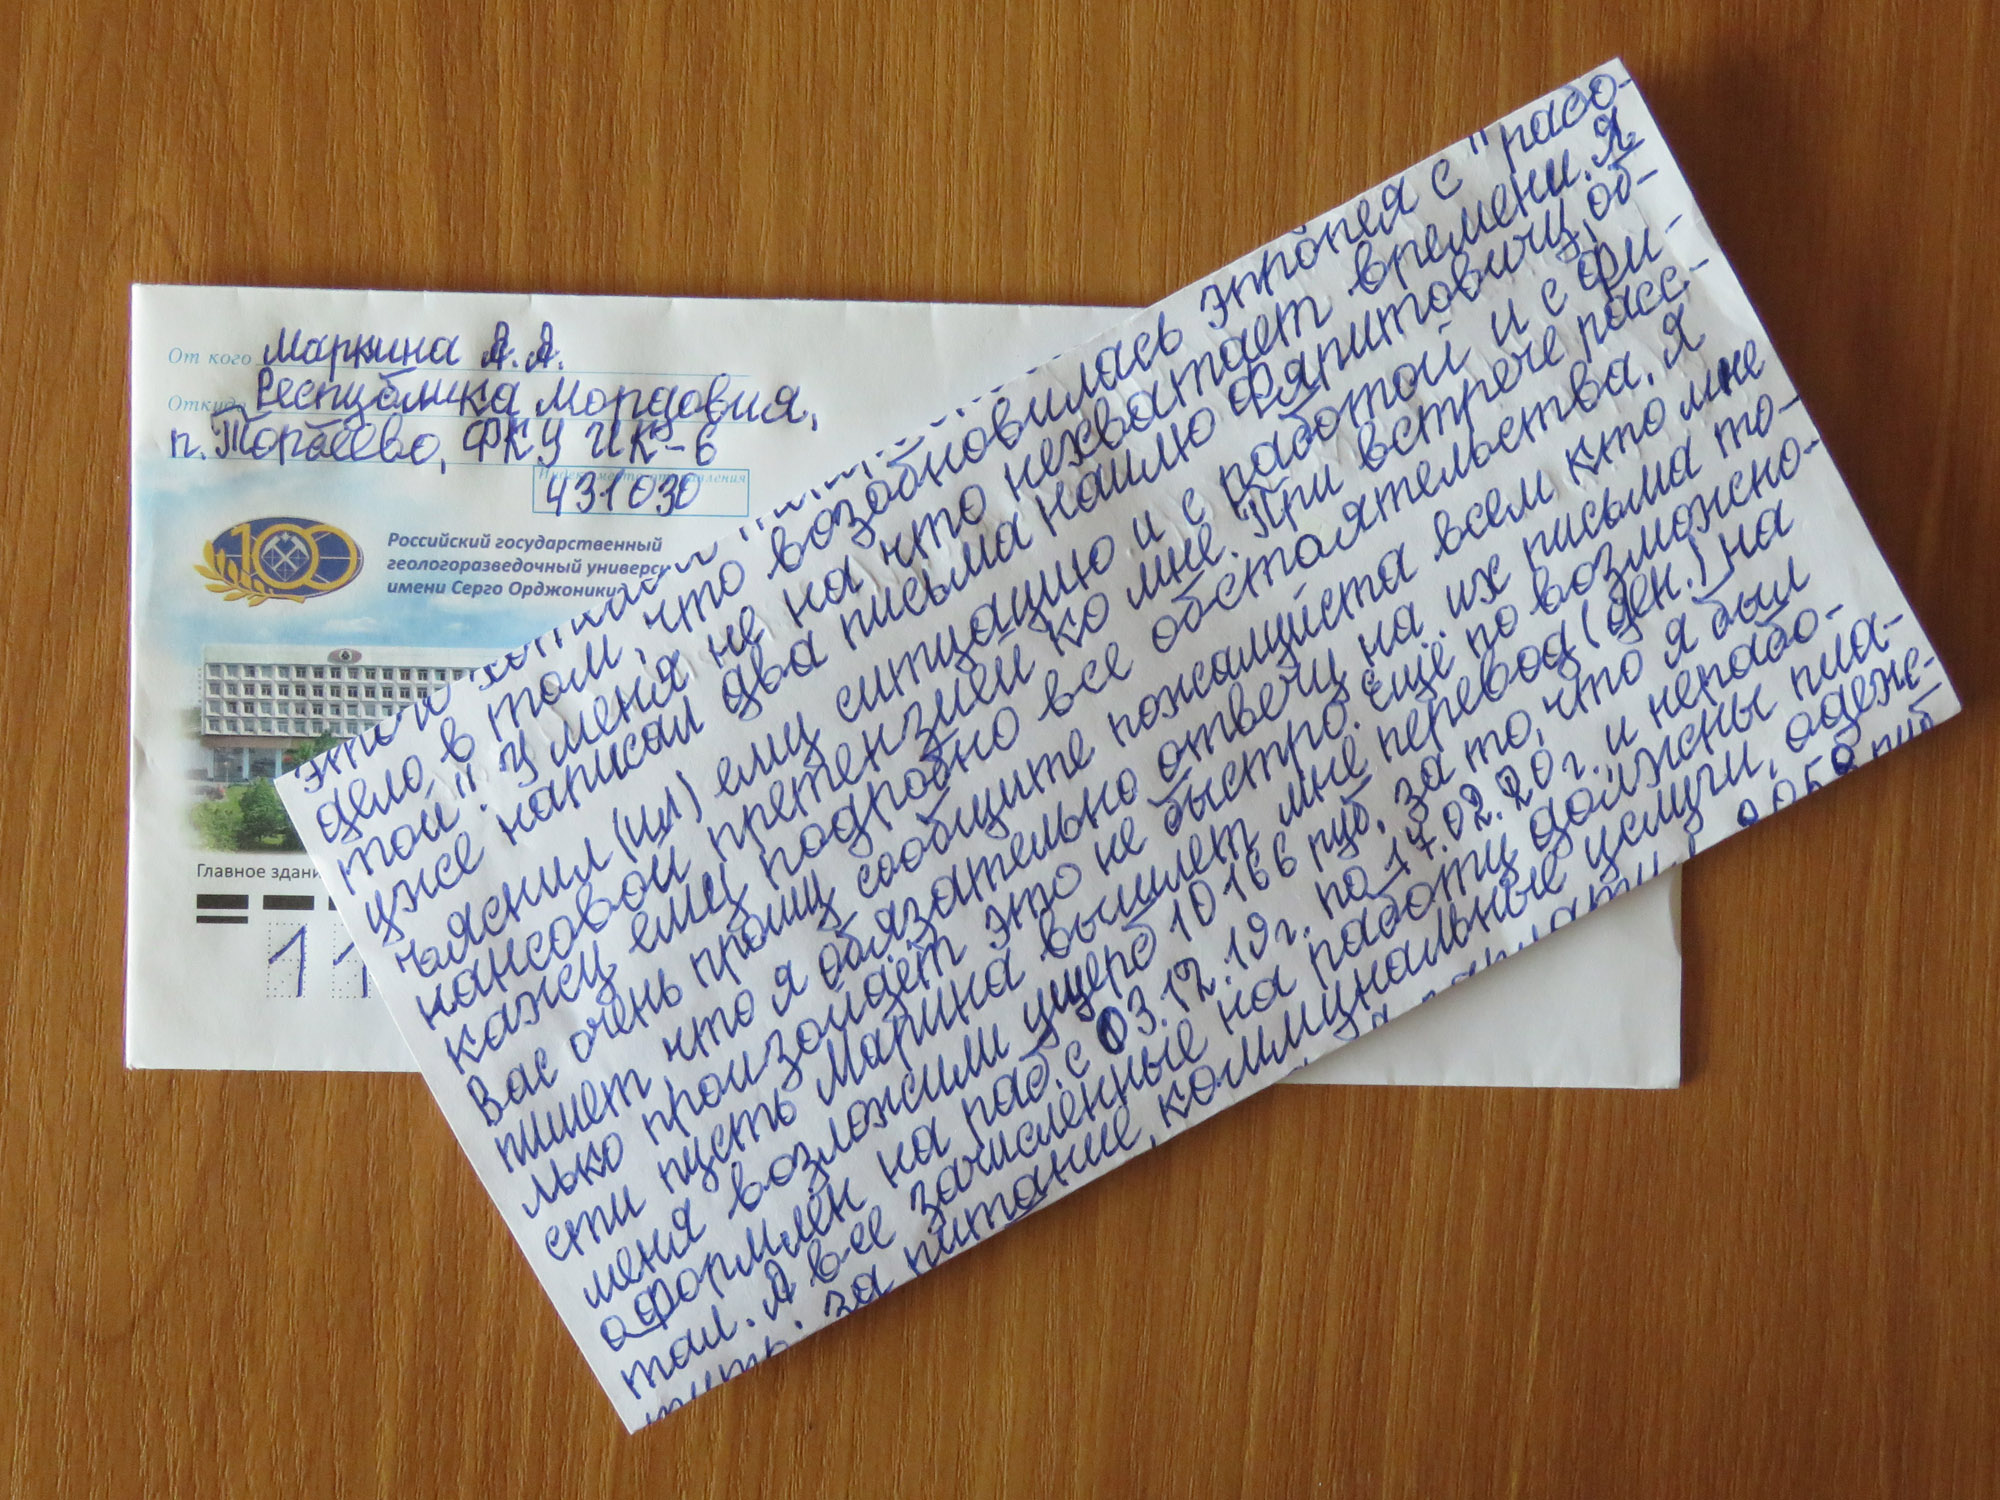 От кого Маркина А.А.
Откуда Республика Мордовия,
п. Торбеево, ФКУ ИК-6
Индекс места отправления
431030
100
Российский государственный
геологоразведочный универс
имени Серго Орджоники
Главное здани
11
дело в том, что возобновилась эпопея с "рабо-
той". У меня не на что нехватает времени. Я
уже написал два письма нашлю Фяритовичу, об-
ъяснил(ил) ему ситуацию и с работой и с фи-
нансовой претензией ко мне. При встрече расс-
кажу ему подробно все обстоятельства. Я
Вас очень прошу сообщите пожалуйста всем кто мне
пишет что я обязательно отвечу на их письма то-
лько произойдёт это не быстро. Ещё по возможно-
сти пусть Марина вышлет мне перевод (ден.) на
меня возложили ущерб 10166 руб, за то, что я был
оформлен на раб. с 03.12.19г. по 17.02.20г. и нерабо-
тал. А все зачисленные на работу должны пла-
тить: за питание, коммунальные услуги, одеж-